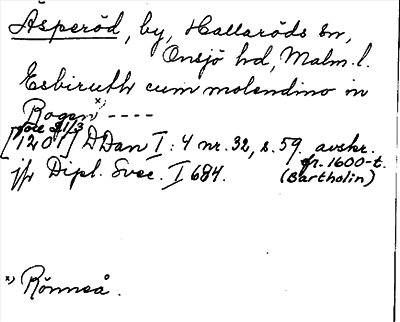 Äsperöd, by, Hallaröds sn,
Onsjö hd, Malm. l.
Esbiruth cum molendino in
Rogen x) ----
före 21/3
[1201] DDan I:4 nr. 32, s. 59. avskr.
fr. 1600-t.
jfr Dipl. Svec. I 684. (Bartholin)
x) Rönneå.